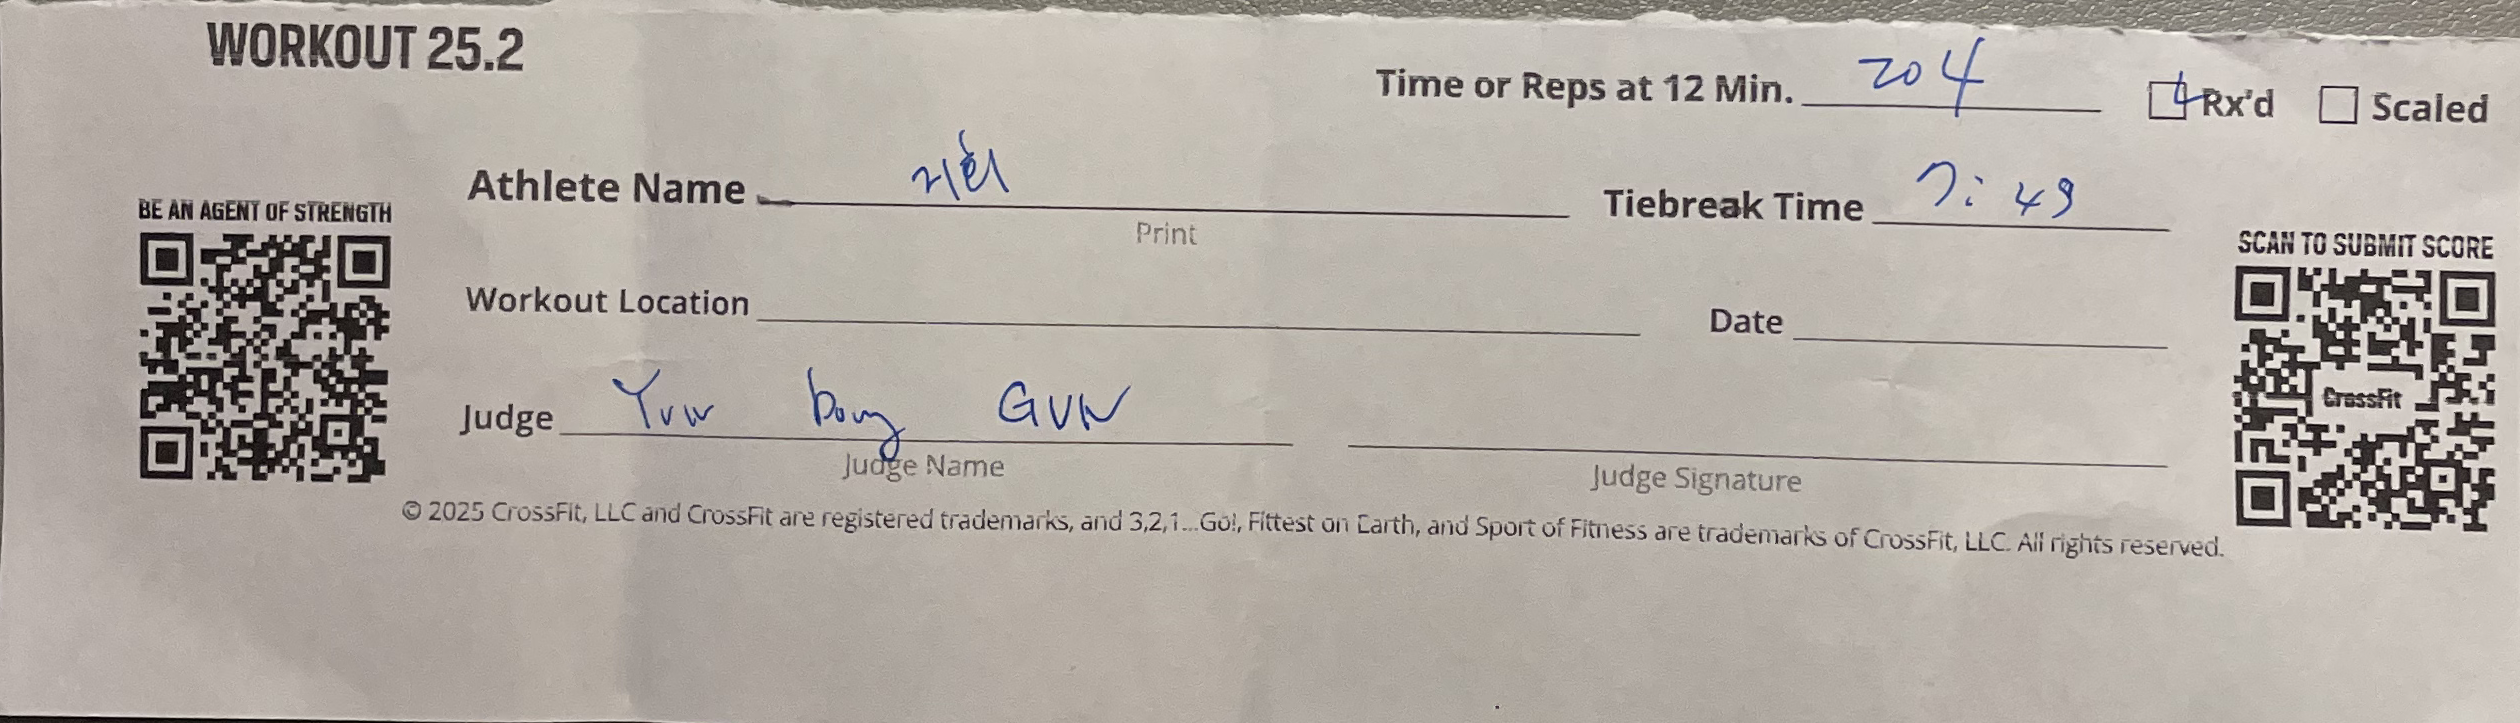 WORKOUT 25.2
Time or Reps at 12 Min. 204 Rx'd Scaled
Athlete Name
Print
Tiebreak Time 7:49
BE AN AGENT OF STRENGTH
SCAN TO SUBMIT SCORE
Workout Location Date
CrossFit
Judge Yun Dong GUN
Judge Name Judge Signature
© 2025 CrossFit, LLC and CrossFit are registered trademarks, and 3,2,1...Go!, Fittest on Earth, and Sport of Fitness are trademarks of CrossFit, LLC. All rights reserved.